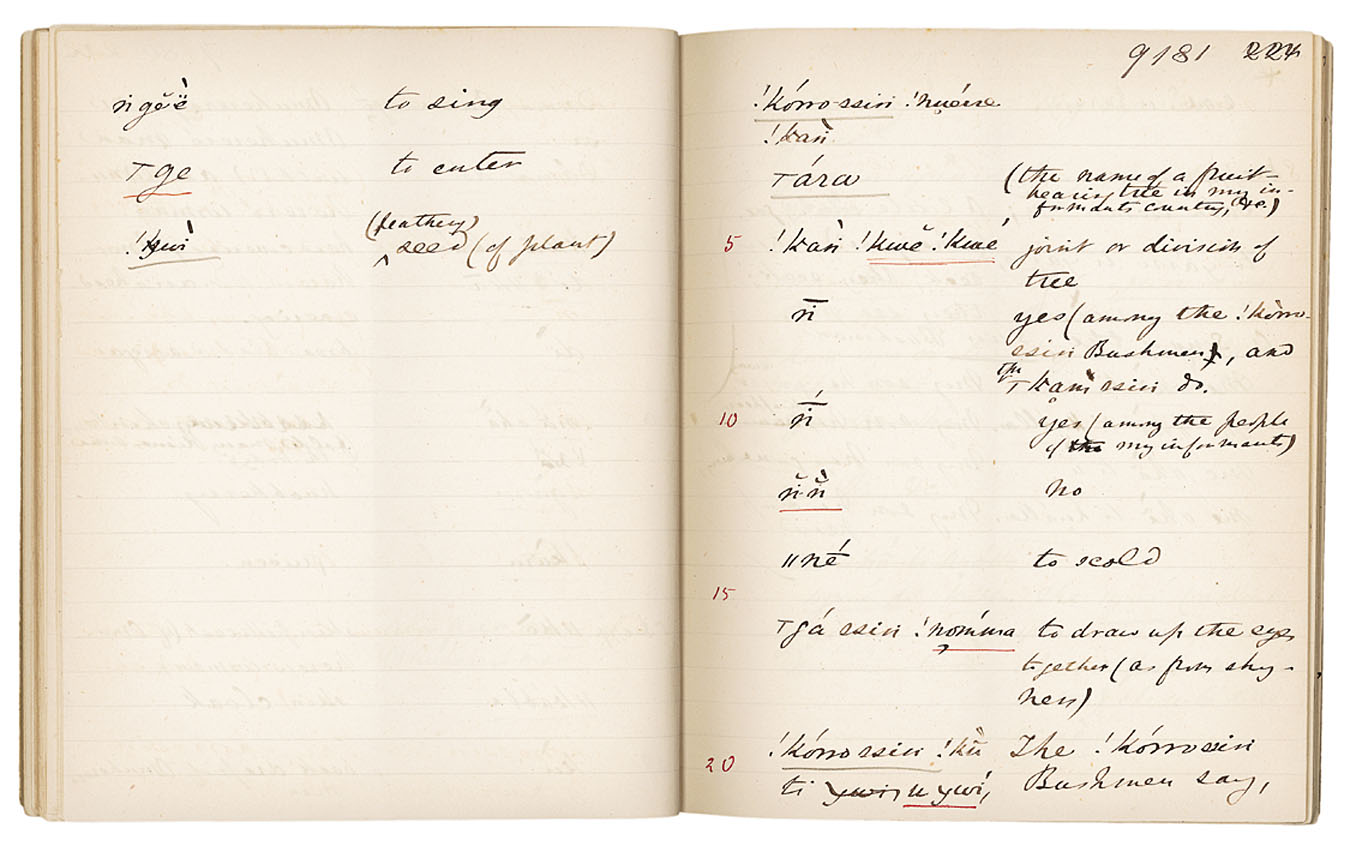 n̈ gĕë̀ to sing
T ge to enter
(feathery)
!kwi̋ seed (of plant)
9181 224
!kórro-ssin !nuérre
!kan̈
Tára (the name of a fruit-
bearing tree in my in-
formants country, &c.)
5 !kan̈ !kuĕ !kué joint or division of
tree
n̄̈ yes (among the !kŏrro-
ssin Bushmen), and
the Tkam̈ssin do.
10 ń̄ yes (among the people
of the my informants)
n̆̈ n̆̀ no
ǁné to scold
15
Tgá ssin !nomma to draw up the eyes
together (as from shy-
ness)
!kórro ssin !kŭ̈ The !kórrossin
20 ti ywi, u ywí, Bushmen say,